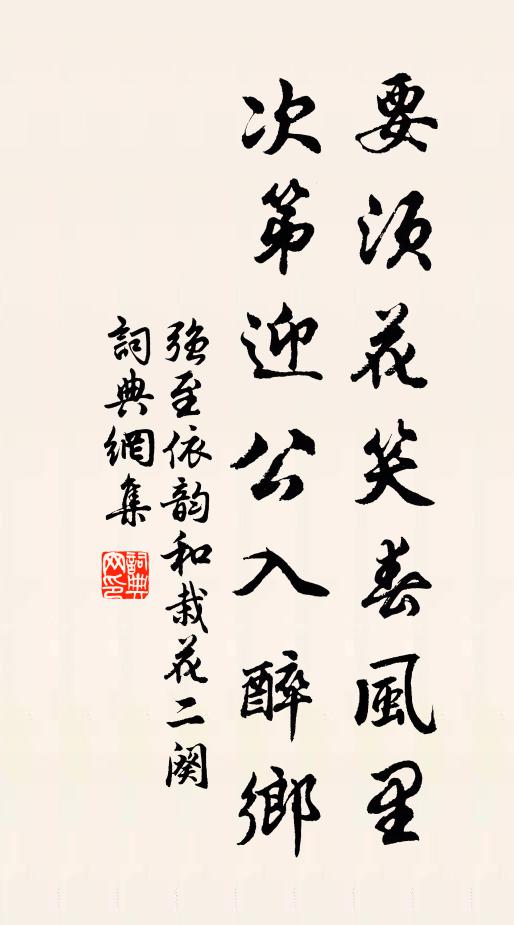 要須花笑春風里
次第迎公入醉鄉
強至依韵和栽花二闋
詞典網集
詞典
网印